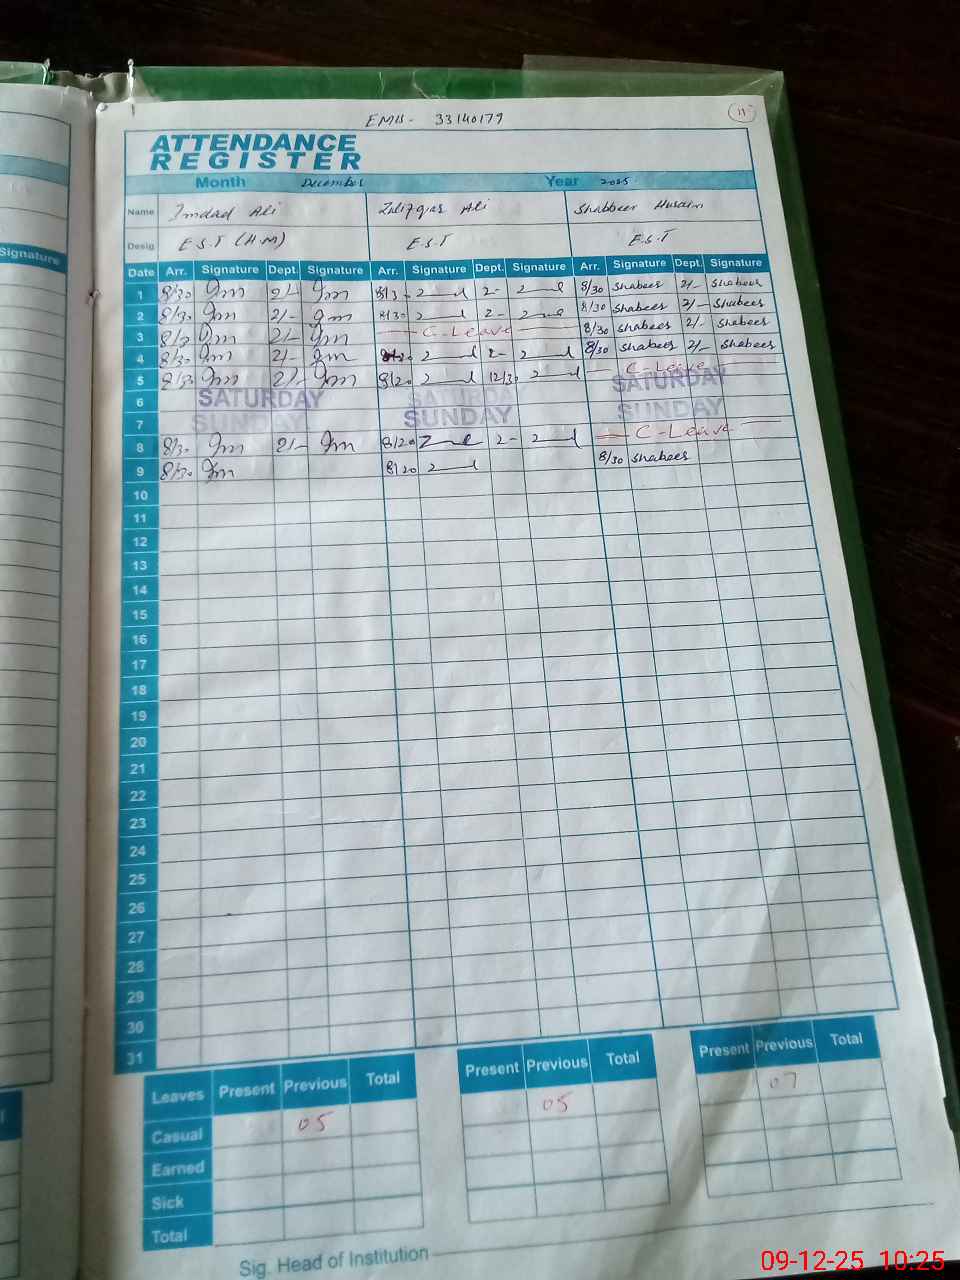 EMIS- 33140179
11
ATTENDANCE
REGISTER
Month December Year 2025
Name Imdad Ali Zulifqar Ali Shabbeer Husain
Desig E.S.T (H.M) E.S.T E.S.T
Signature
Date Arr. Signature Dept. Signature Arr. Signature Dept. Signature Arr. Signature Dept. Signature
1 8/30 2/- 8/30 2- 8/30 Shabeer 2/- Shabeer
2 8/30 2/- 8/30 2- 8/30 Shabeer 2/- Shabeer
3 8/30 2/- C-Leave 8/30 Shabeer 2/- Shabeer
4 8/30 2/- 2- 8/30 Shabeer 2/- Shabeer
5 8/30 2/- 8/20 12/30 C-Leave
6 SATURDAY SATURDAY SATURDAY
7 SUNDAY SUNDAY SUNDAY
8 8/30 2/- 8/20 2- C-Leave
9 8/30 8/20 8/30 Shabeer
10
11
12
13
14
15
16
17
18
19
20
21
22
23
24
25
26
27
28
29
30
31
Leaves Present Previous Total Present Previous Total Present Previous Total
Casual 05 05 07
Earned
Sick
Total
Sig. Head of Institution
09-12-25 10:25